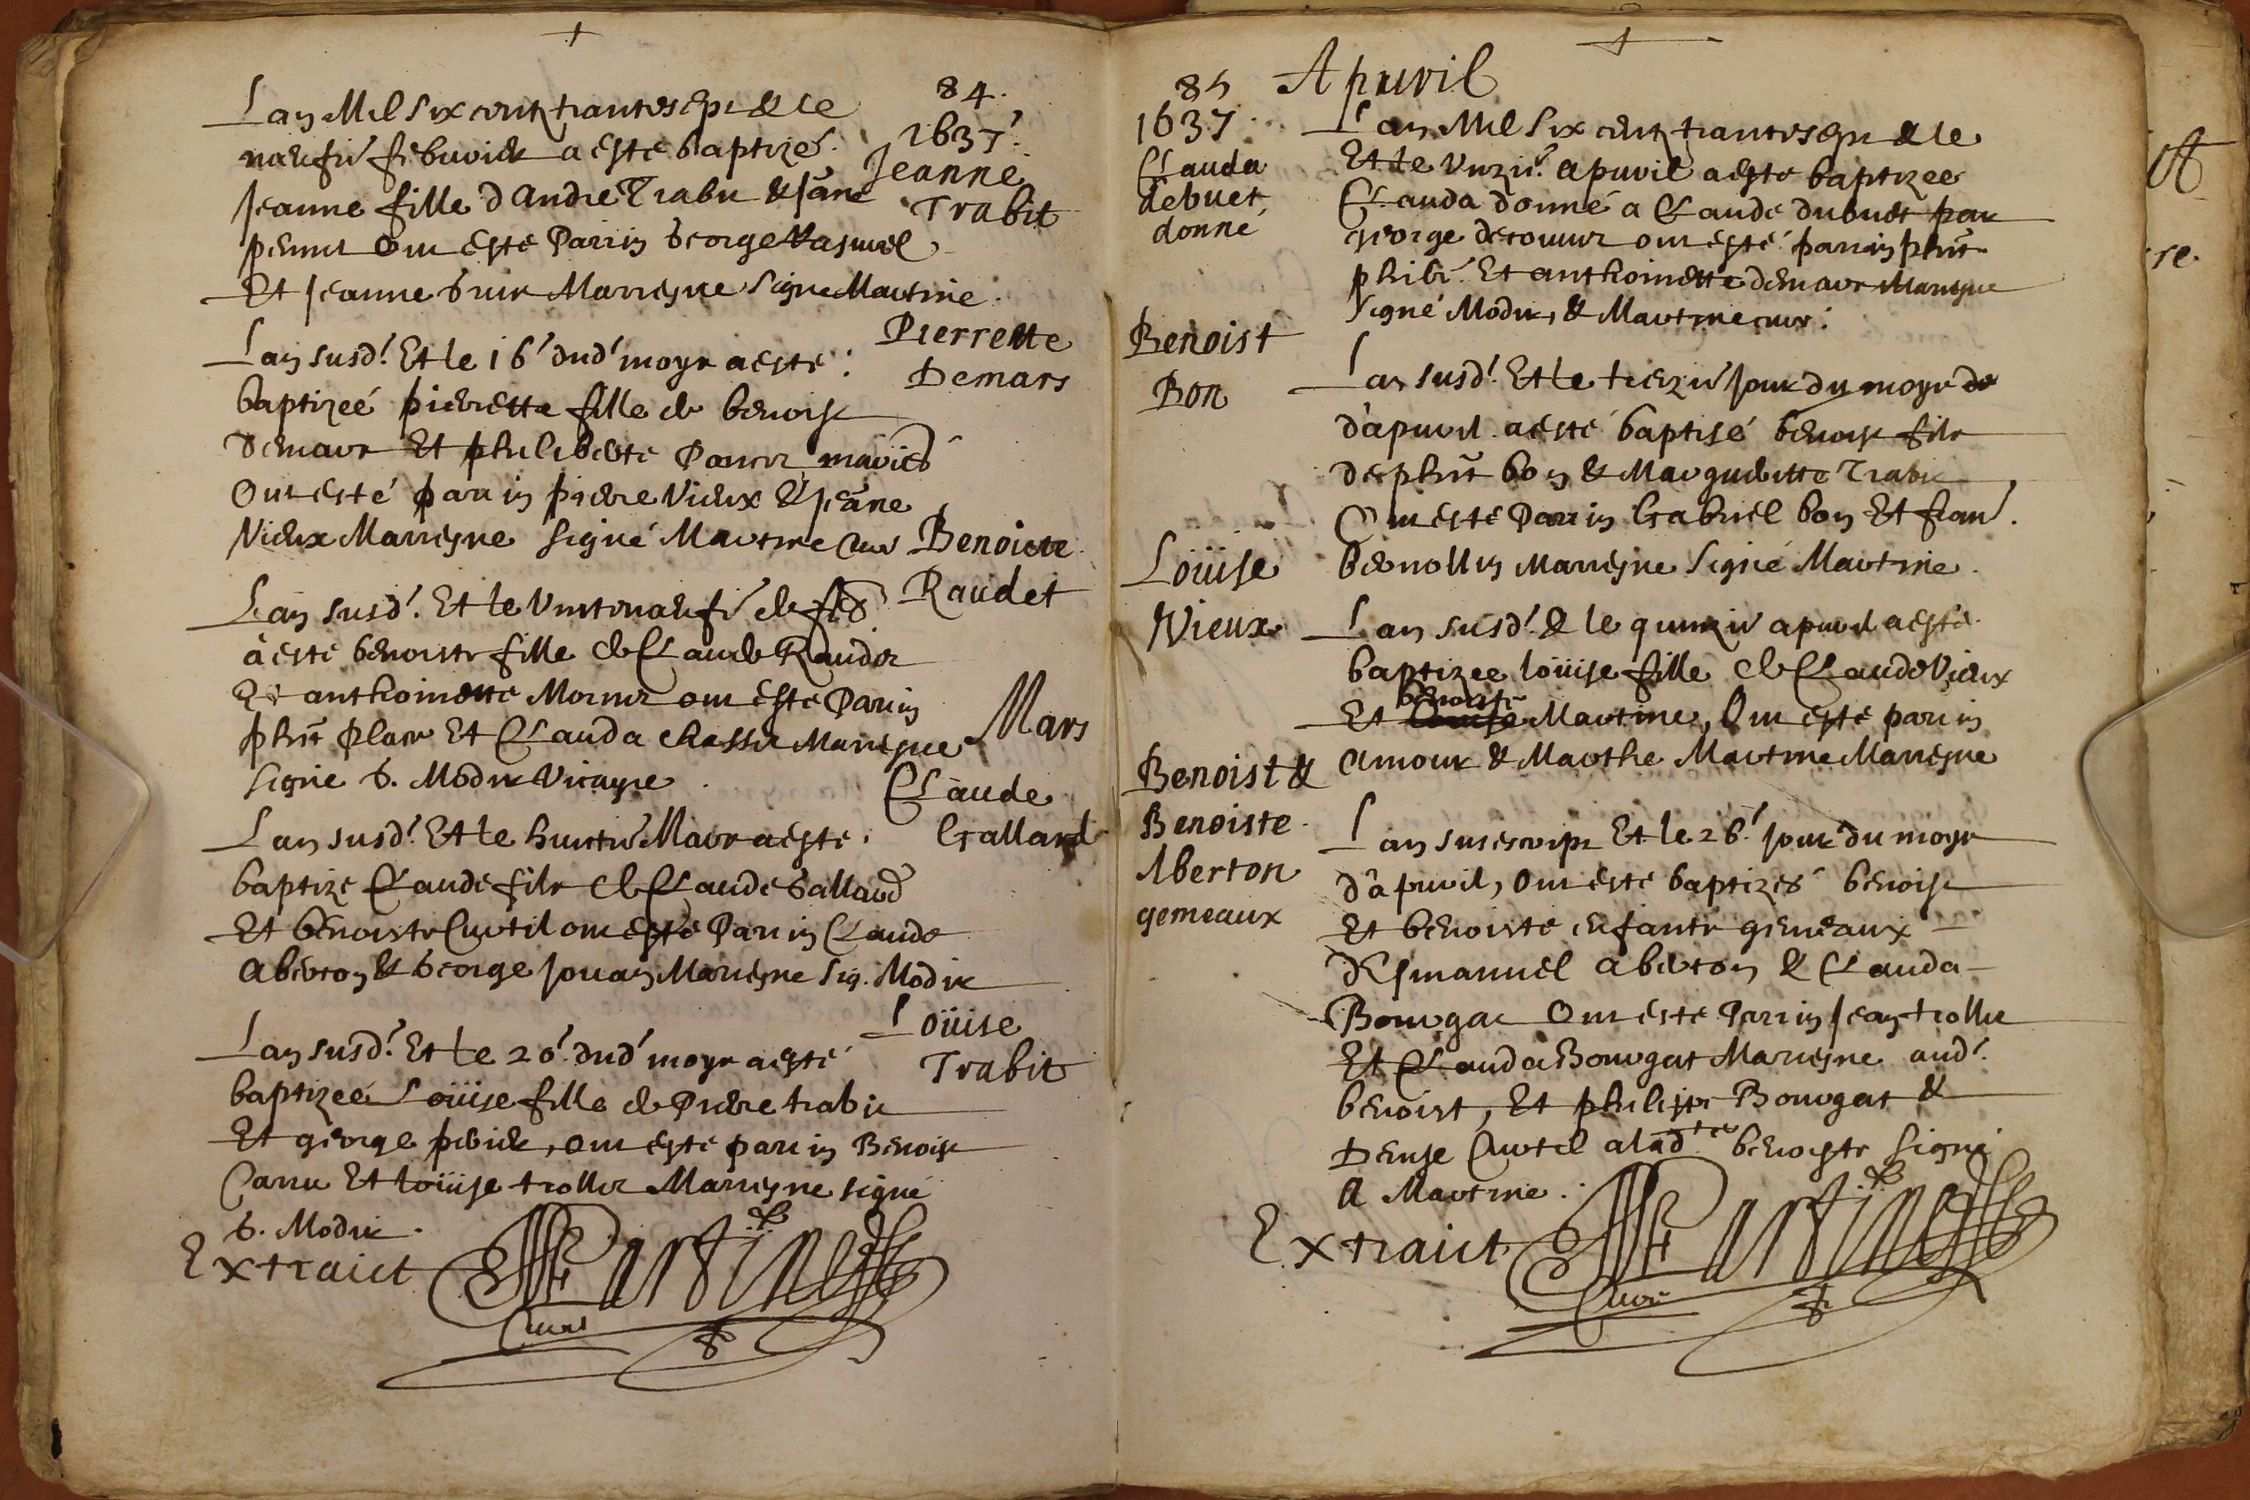 84.
1637
Jeanne
Trabit
Lan Mil six centz trante sept & le
neufie febvrier a esté baptizé
Jeanne fille d'André Trabit & Jane
ont esté Parrin George
Et Jeanne Marresne Signe Martine
Pierrette
Demars
Lan susd.t Et le 16e dud.t moys a esté
baptizeé pierrette fille de benoist
Demars Et philiberte mariés
Ont esté parrin pierre Vieux & Jeane
Vieux Marresne signé Martine Curé
Benoiste
Raudet
Lan susd.t Et le vintneufie de feb
à esté benoiste fille de Claude Raudet
Et anthoinette ont esté Parrin
phit Et Clauda Marresne
signe G. Modix Vicayre
Mars
Claude
Gallard
Lan susd.t Et le huictie Mars a esté
baptize Claude filz de Claude Gallard
Et benoiste Curtil ont esté Parrin Claude
Aberton & George Jouan Marresne Sig. Modix
Loüise
Trabit
Lan susd.t Et le 20e dud.t moys a esté
baptizeé Loüise fille de Pierre trabit
Et george, ont esté parrin Benoist
Carru Et loüise trollier Marresne signé
G. Modix.
Extraict Martine
Curé
85
1637
Apuvril
Clauda
debuet
donné
Lan Mil six centz trante sept & le
Et le unzie apuvril a esté baptizee
Clauda donné a Claude dubuet par
George ont esté parrin phit
phibt Et anthoinette demars Marresne
signé Modix, & Martine curé
Benoist
Bon
Lan susd.t Et le trezie jour du moys de
d'apuvril a esté baptisé benoist filz
de phit bon & Margueritte Trabit
Ont esté Parrin Gabriel bon Et fran.
bernollin Marresne Signé Martine
Loüise
Vieux
Lan susd.t & le quinzie apuvril a esté
baptizee loüise fille de Claude Vieux
Et benoiste Martine, Ont esté parrin
Amour & Marthe Martine Marresne
Benoist &
Benoiste
Aberton
gemeaux
Lan susescript Et le 26e jour du moys
d'apuvril, ont esté baptizés benoist
Et benoiste enfantz gemeaux
D'Esmanuel aberton & Clauda
Bourgat Ont esté Parrin Jean trollier
Et Clauda Bourgat Marresne aud.t
benoist, Et philippe Bourgat &
Denyse Curtil a lad.te benoyste signé
A Martine.
Extraict Martine
Curé